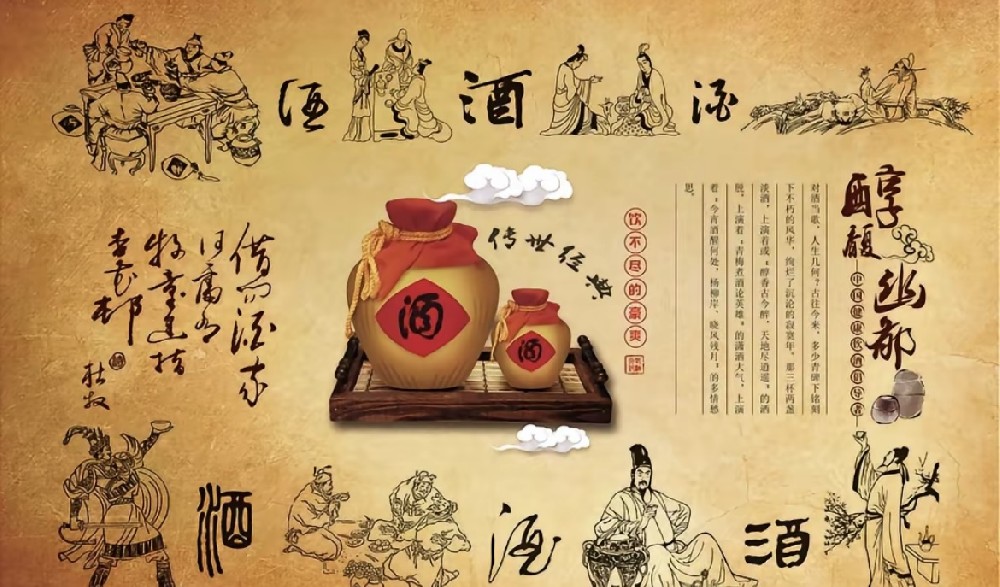 酒 酒 酒
醇馥
幽郁
中国健康饮酒倡导者
对酒当歌,人生几何?古往今来,多少青碑下铭刻
下不朽的风华,绚烂了沉沦的寂寞年。那三杯两盏
淡酒,上演着或“醇香古今醉,天地尽逍遥”的洒
脱,上演着“青梅煮酒论英雄”的潇洒大气,上演
着“今宵酒醒何处,杨柳岸,晓风残月”的多情愁
思。
饮不尽的豪爽
传世经典
酒
酒
借问酒家
何处有
牧童遥指
杏花村
杜牧
酒 酒 酒